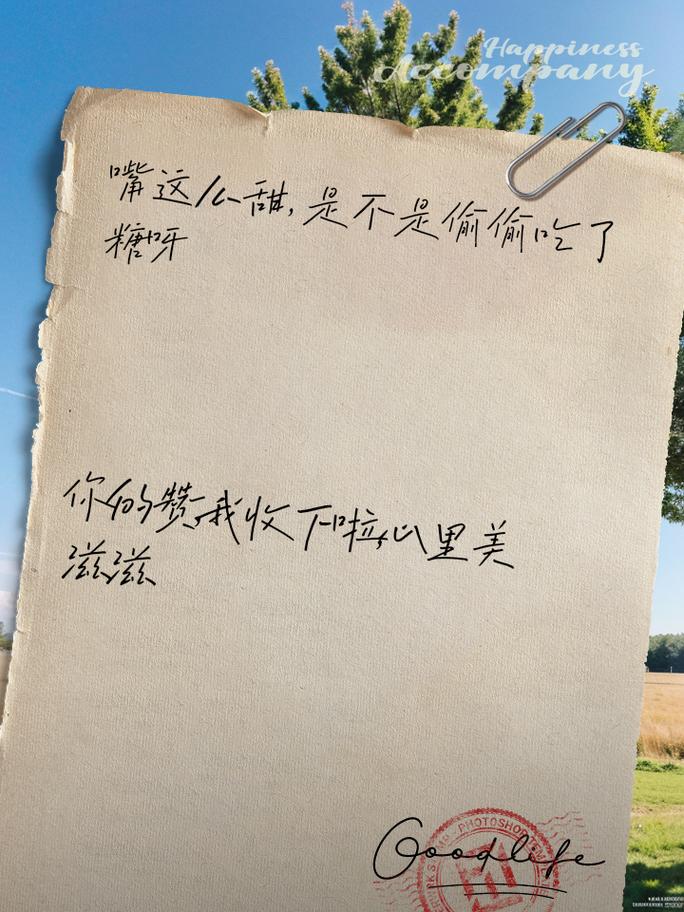 Happiness
Accompany
嘴这么甜,是不是偷偷吃了
糖呀
你的赞,我收下啦,心里美
滋滋
PHOTOSHOP
Goodlife